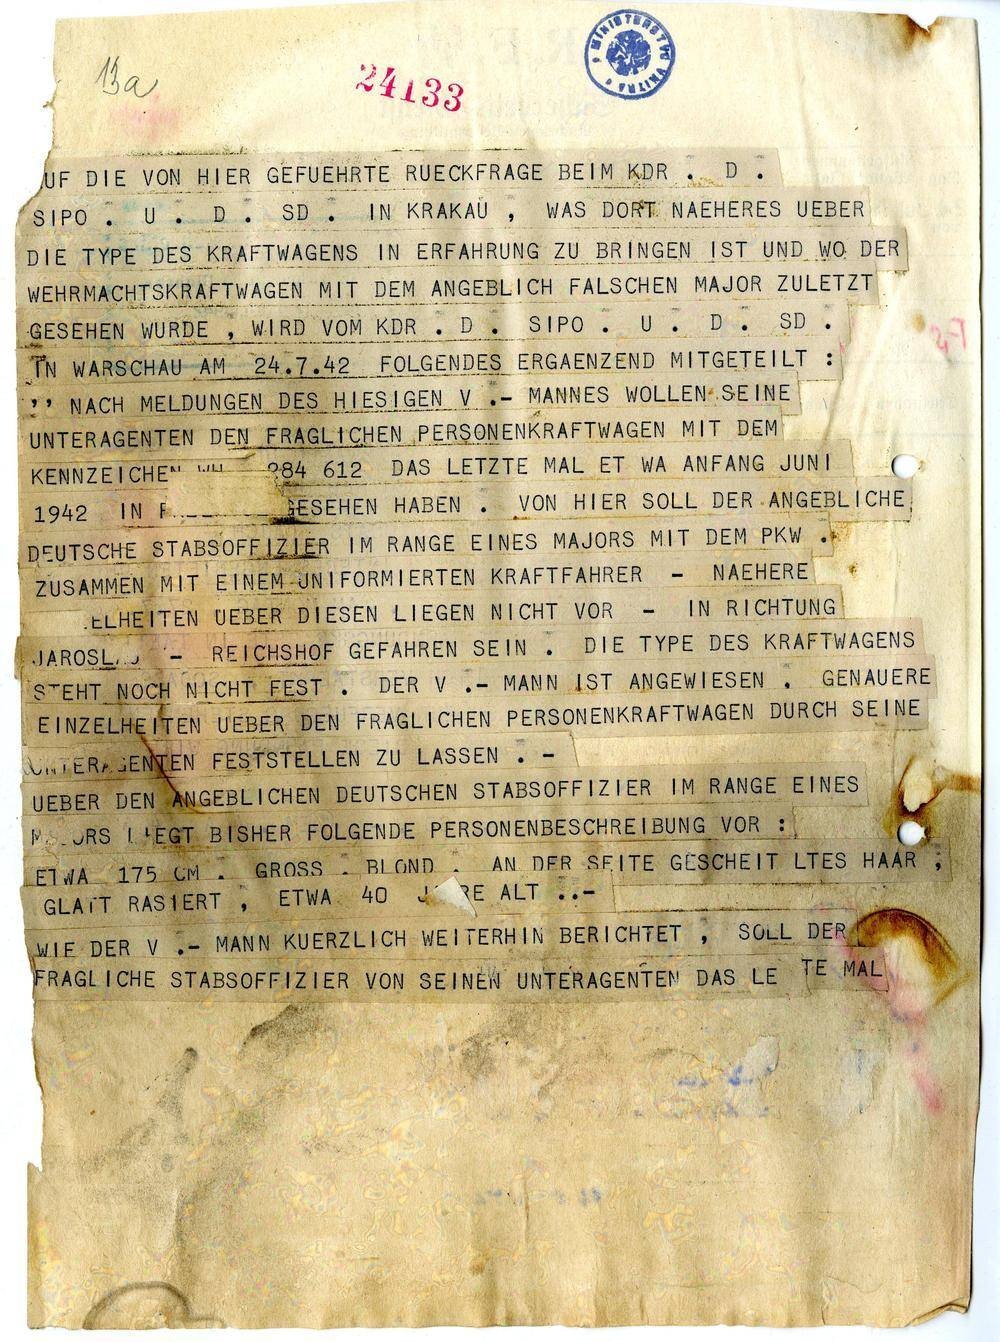 13a
24133
MINISTERSTVO VNITRA
UF DIE VON HIER GEFUEHRTE RUECKFRAGE BEIM KDR . D .
SIPO . U . D . SD . IN KRAKAU , WAS DORT NAEHERES UEBER
DIE TYPE DES KRAFTWAGENS IN ERFAHRUNG ZU BRINGEN IST UND WO DER
WEHRMACHTSKRAFTWAGEN MIT DEM ANGEBLICH FALSCHEN MAJOR ZULETZT
GESEHEN WURDE , WIRD VOM KDR . D . SIPO . U . D . SD .
IN WARSCHAU AM 24.7.42 FOLGENDES ERGAENZEND MITGETEILT :
'' NACH MELDUNGEN DES HIESIGEN V .- MANNES WOLLEN SEINE
UNTERAGENTEN DEN FRAGLICHEN PERSONENKRAFTWAGEN MIT DEM
KENNZEICHEN WH 984 612 DAS LETZTE MAL ET WA ANFANG JUNI
1942 IN GESEHEN HABEN . VON HIER SOLL DER ANGEBLICHE
DEUTSCHE STABSOFFIZIER IM RANGE EINES MAJORS MIT DEM PKW .
ZUSAMMEN MIT EINEM UNIFORMIERTEN KRAFTFAHRER - NAEHERE
ELHEITEN UEBER DIESEN LIEGEN NICHT VOR - IN RICHTUNG
JAROSLAU - REICHSHOF GEFAHREN SEIN . DIE TYPE DES KRAFTWAGENS
STEHT NOCH NICHT FEST . DER V .- MANN IST ANGEWIESEN . GENAUERE
EINZELHEITEN UEBER DEN FRAGLICHEN PERSONENKRAFTWAGEN DURCH SEINE
UNTERAGENTEN FESTSTELLEN ZU LASSEN . -
UEBER DEN ANGEBLICHEN DEUTSCHEN STABSOFFIZIER IM RANGE EINES
MAJORS LIEGT BISHER FOLGENDE PERSONENBESCHREIBUNG VOR :
ETWA 175 CM . GROSS . BLOND . AN DER SEITE GESCHEIT LTES HAAR ,
GLATT RASIERT , ETWA 40 JAHRE ALT ..-
WIE DER V .- MANN KUERZLICH WEITERHIN BERICHTET , SOLL DER
FRAGLICHE STABSOFFIZIER VON SEINEN UNTERAGENTEN DAS LE TE MAL